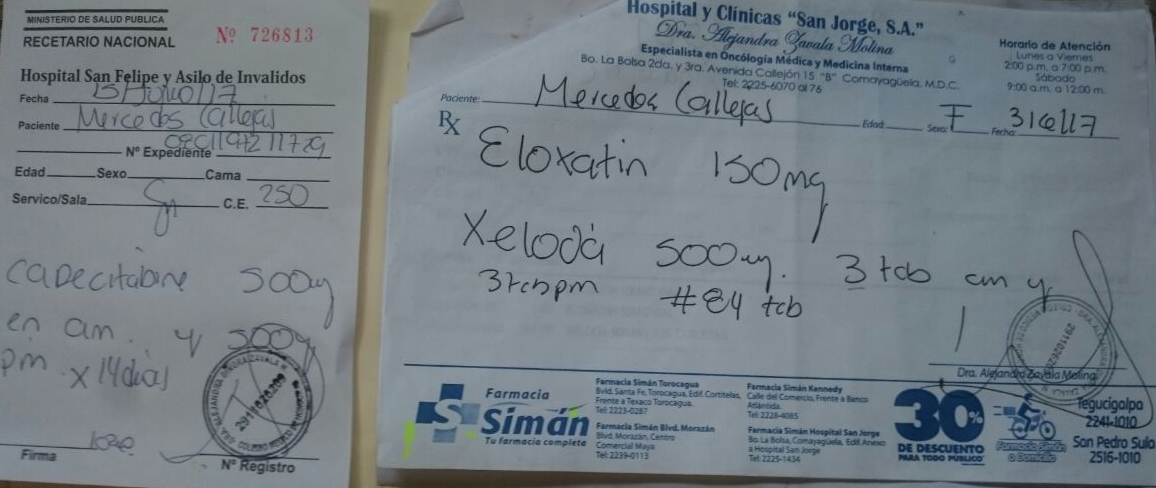 MINISTERIO DE SALUD PUBLICA
RECETARIO NACIONAL
Nº 726813
Hospital San Felipe y Asilo de Invalidos
Fecha 13/Julio/17
Paciente Mercedes Callejas
Nº Expediente
Edad Sexo Cama
Servico/Sala C.E. 250
capecitabine 500mg
en am. y 500mg
pm. x 14 dias
Firma
Nº Registro
Hospital y Clínicas “San Jorge, S.A.”
Dra. Alejandra Zavala Molina
Especialista en Oncología Médica y Medicina Interna
Bo. La Bolsa 2da, y 3ra. Avenida Callejón 15 "B" Comayagüela, M.D.C.
Tel: 2225-6070 al 76
Horario de Atención
Lunes a Viernes
2:00 p.m. a 7:00 p.m.
Sábado
9:00 a.m. a 12:00 m.
Paciente: Mercedes Callejas Edad: Sexo: F Fecha:
Rx
Eloxatin 150mg
Xeloda 500mg. 3 tab am y
3 tab pm #84 tab
Dra. Alejandra Zavala Molina
Farmacia
Simán
Tu farmacia completa
Farmacia Simán Torocagua
Bvld. Santa Fe, Torocagua, Edif. Cortitelas,
Frente a Texaco Torocagua.
Tel: 2223-0287
Farmacia Simán Blvd. Morazán
Blvd. Morazán, Centro
Comercial Maya
Tel: 2239-0113
Farmacia Simán Kennedy
Calle del Comercio, Frente a Banco
Atlántida.
Tel: 2228-4085
Farmacia Simán Hospital San Jorge
Bo. La Bolsa, Comayagüela, Edif. Anexo
a Hospital San Jorge
Tel: 2225-1434
30%
DE DESCUENTO
PARA TODO PUBLICO
Farmacia Simán
a Domicilio
Tegucigalpa
2241-1010
San Pedro Sula
2516-1010